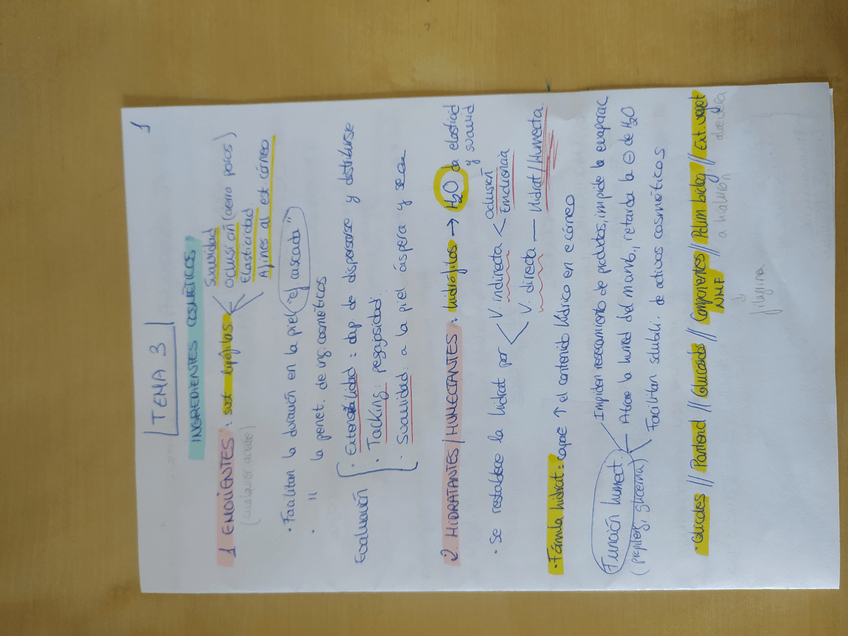 1
TEMA 3
INGREDIENTES COSMÉTICOS
1 EMOLIENTES: sust lipófilas < Suavidad
Oclusión (cierra poros)
Elasticidad
Afines al est córneo
(cualquier aceite)
· Facilitan la duración en la piel "ef cascada"
· " la penet. de ing cosméticos
Evaluación
· Extensibilidad: cap de dispersarse y distribuirse
· Tacking: pegajosidad
· Suavidad a la piel áspera y seca
2 HIDRATANTES/HUMECTANTES: hidrófilos → H2O da elasticidad y suavid
· Se restablece la hidrat por < V indirecta < oclusión
Emoliencia
V. directa — Hidrat/Humecta.
· Fórmula hidrat: capaz ↑ el contenido hídrico en e córneo
Función humect: Impiden resecamiento de productos, impide la evaporac
(propileg, glicerina) Atrae la humed del mundo, retarda la ⊖ de H2O
Facilitan solubili. de activos cosméticos
· Glicoles // Pantenol // Glúcidos // Componentes NMF // Polim biológ // Ext. veget
filagrina
a hialurón
aloe vera